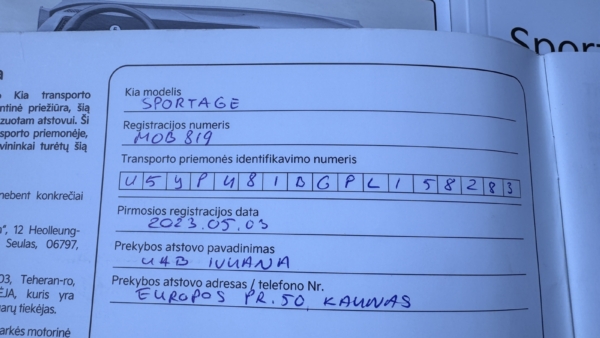 Sport
a
Kia transporto
ntinė priežiūra, šią
zuotam atstovui. Ši
sporto priemonėje,
vininkai turėtų šią
nebent konkrečiai
", 12 Heolleung-
Seulas, 06797,
03, Teheran-ro,
ĖJA, kuris yra
arų tiekėjas.
arkės motorinė
Kia modelis
SPORTAGE
Registracijos numeris
MOB 819
Transporto priemonės identifikavimo numeris
U5YPU81BGPL158283
Pirmosios registracijos data
2023.05.03
Prekybos atstovo pavadinimas
UAB
Prekybos atstovo adresas / telefono Nr.
EUROPOS PR. 50, KAUNAS